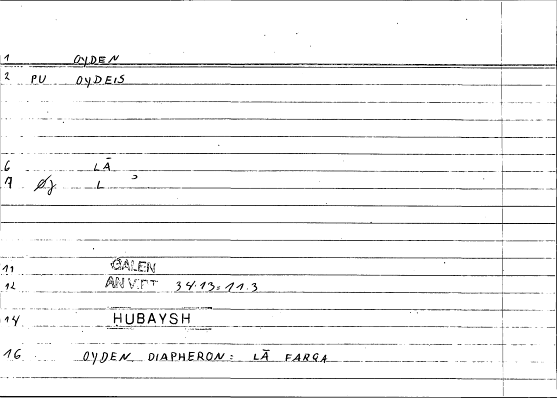 1 OYDEN
2 PU OYDEIS
6 LĀ
7 Øy L ɔ
11 GALEN
12 AN VIRT 34.13 = 11.3
14 HUBAYSH
16 OYDEN DIAPHERON: LĀ FARQA